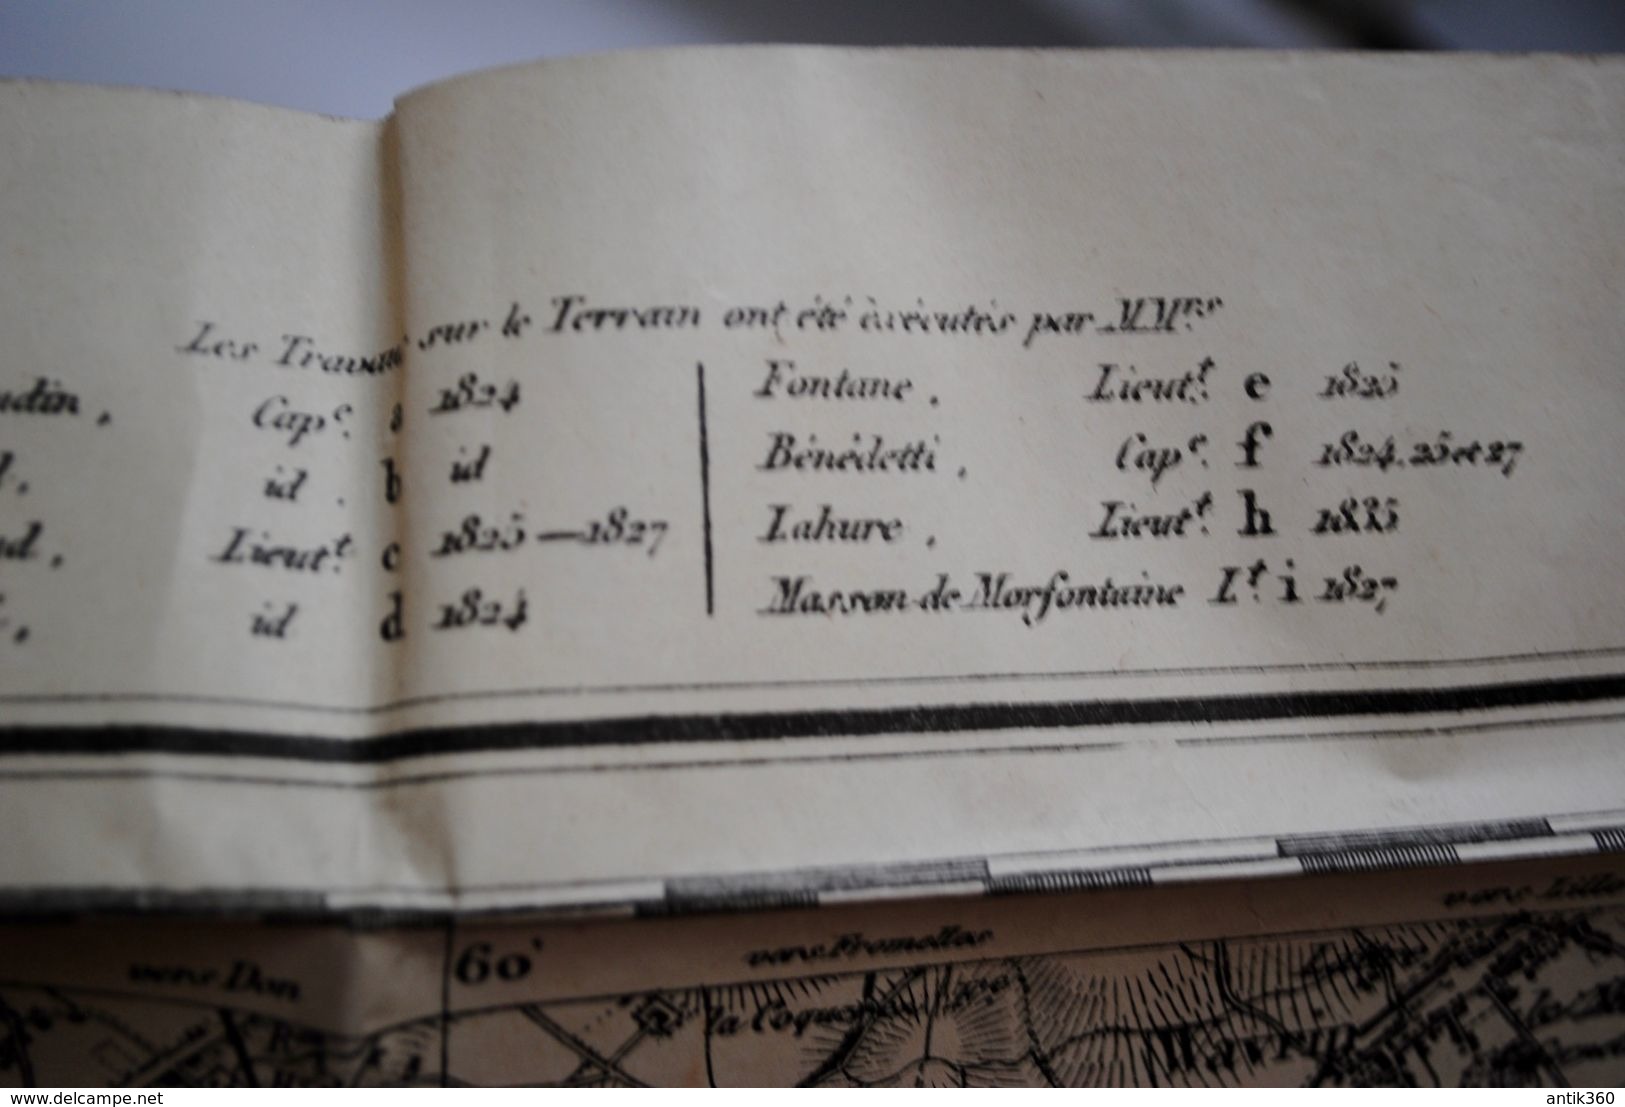 Les Travaux sur le Terrain ont été exécutés par MM.rs
udin, Cap.e a 1824
id. b id
Lieut.t c 1825—1827
id d 1824
Fontane, Lieut.t e 1825
Bénédetti, Cap.e f 1824. 25 et 27
Lahure, Lieut.t h 1835
Masson de Morfontaine L.t i 1827
vers Don
60'
vers Fromelles
vers Lille
la Coque
Wavrin
delcampe.net
antik360